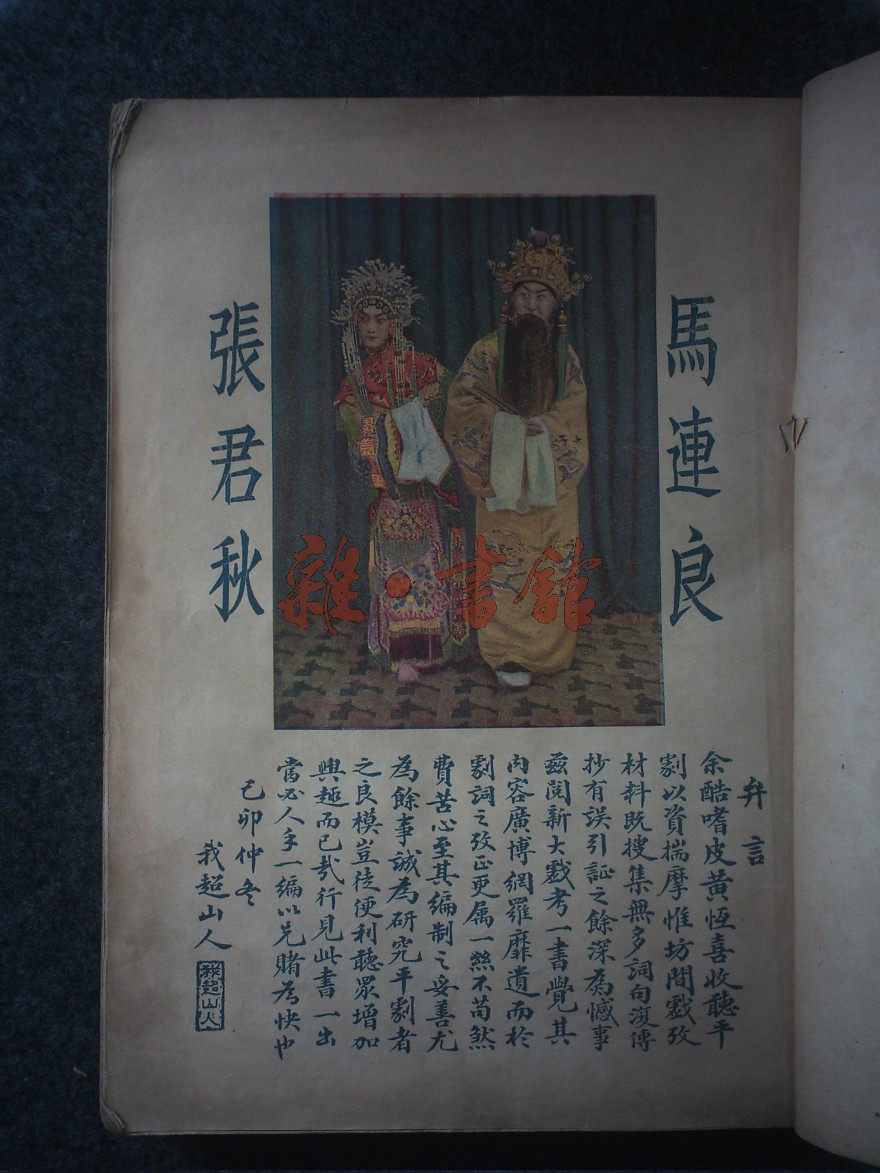 馬連良
張君秋
雜·書館
弁言
余酷嗜皮黃恆喜收聽平
劇以資揣摩惟坊間戲攷
材料既搜集無多詞句復傳
抄有誤引証之餘深為憾事
茲閱新大戲考一書覺其
內容廣博網羅靡遺而於
劇詞之攷正更属一絲不苟煞
費苦心至其編制之妥善尤
為餘事誠為研究平劇者
之良模豈徒便利聽眾增加
興趣而已哉行見此書一出
當必人手一編以先睹為快也
己卯仲冬
我超山人
我超山人